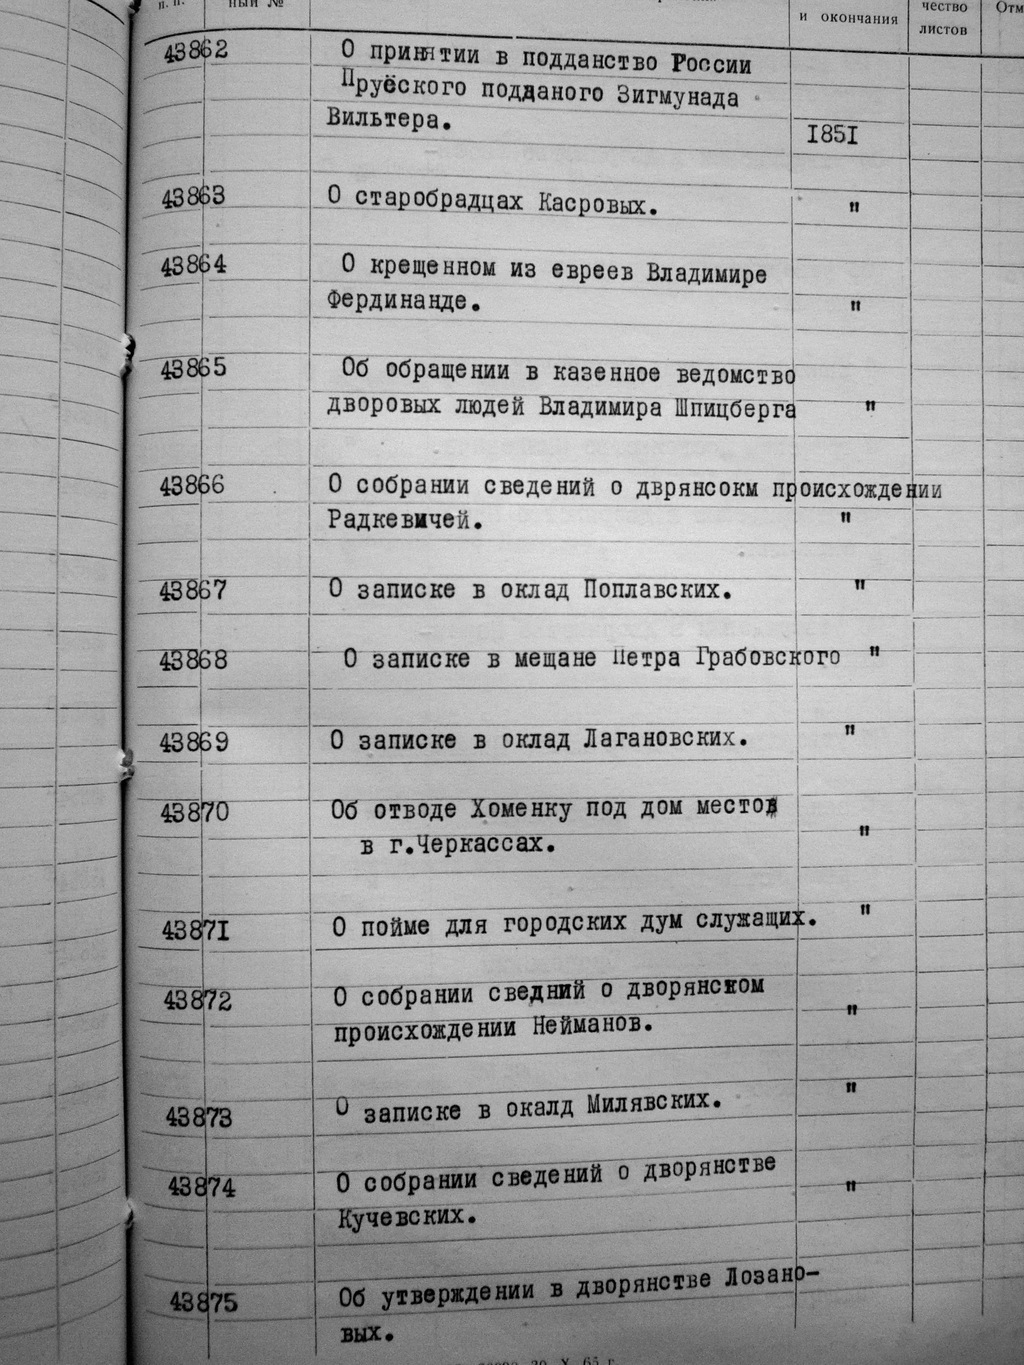 п. п.
ный №
и окончания
чество
листов
Отм
43862 О принятии в подданство России
Прусского подданого Зигмунада
Вильтера. 1851
43863 О старобрадцах Касровых. "
43864 О крещенном из евреев Владимире
Фердинанде. "
43865 Об обращении в казенное ведомство
дворовых людей Владимира Шпицберга "
43866 О собрании сведений о дврянсокм происхождении
Радкевичей. "
43867 О записке в оклад Поплавских. "
43868 О записке в мещане Петра Грабовского "
43869 О записке в оклад Лагановских. "
43870 Об отводе Хоменку под дом место
в г.Черкассах. "
43871 О пойме для городских дум служащих. "
43872 О собрании сведний о дворянском
происхождении Нейманов. "
43873 О записке в окалд Милявских. "
43874 О собрании сведений о дворянстве
Кучевских. "
43875 Об утверждении в дворянстве Лозано-
вых.